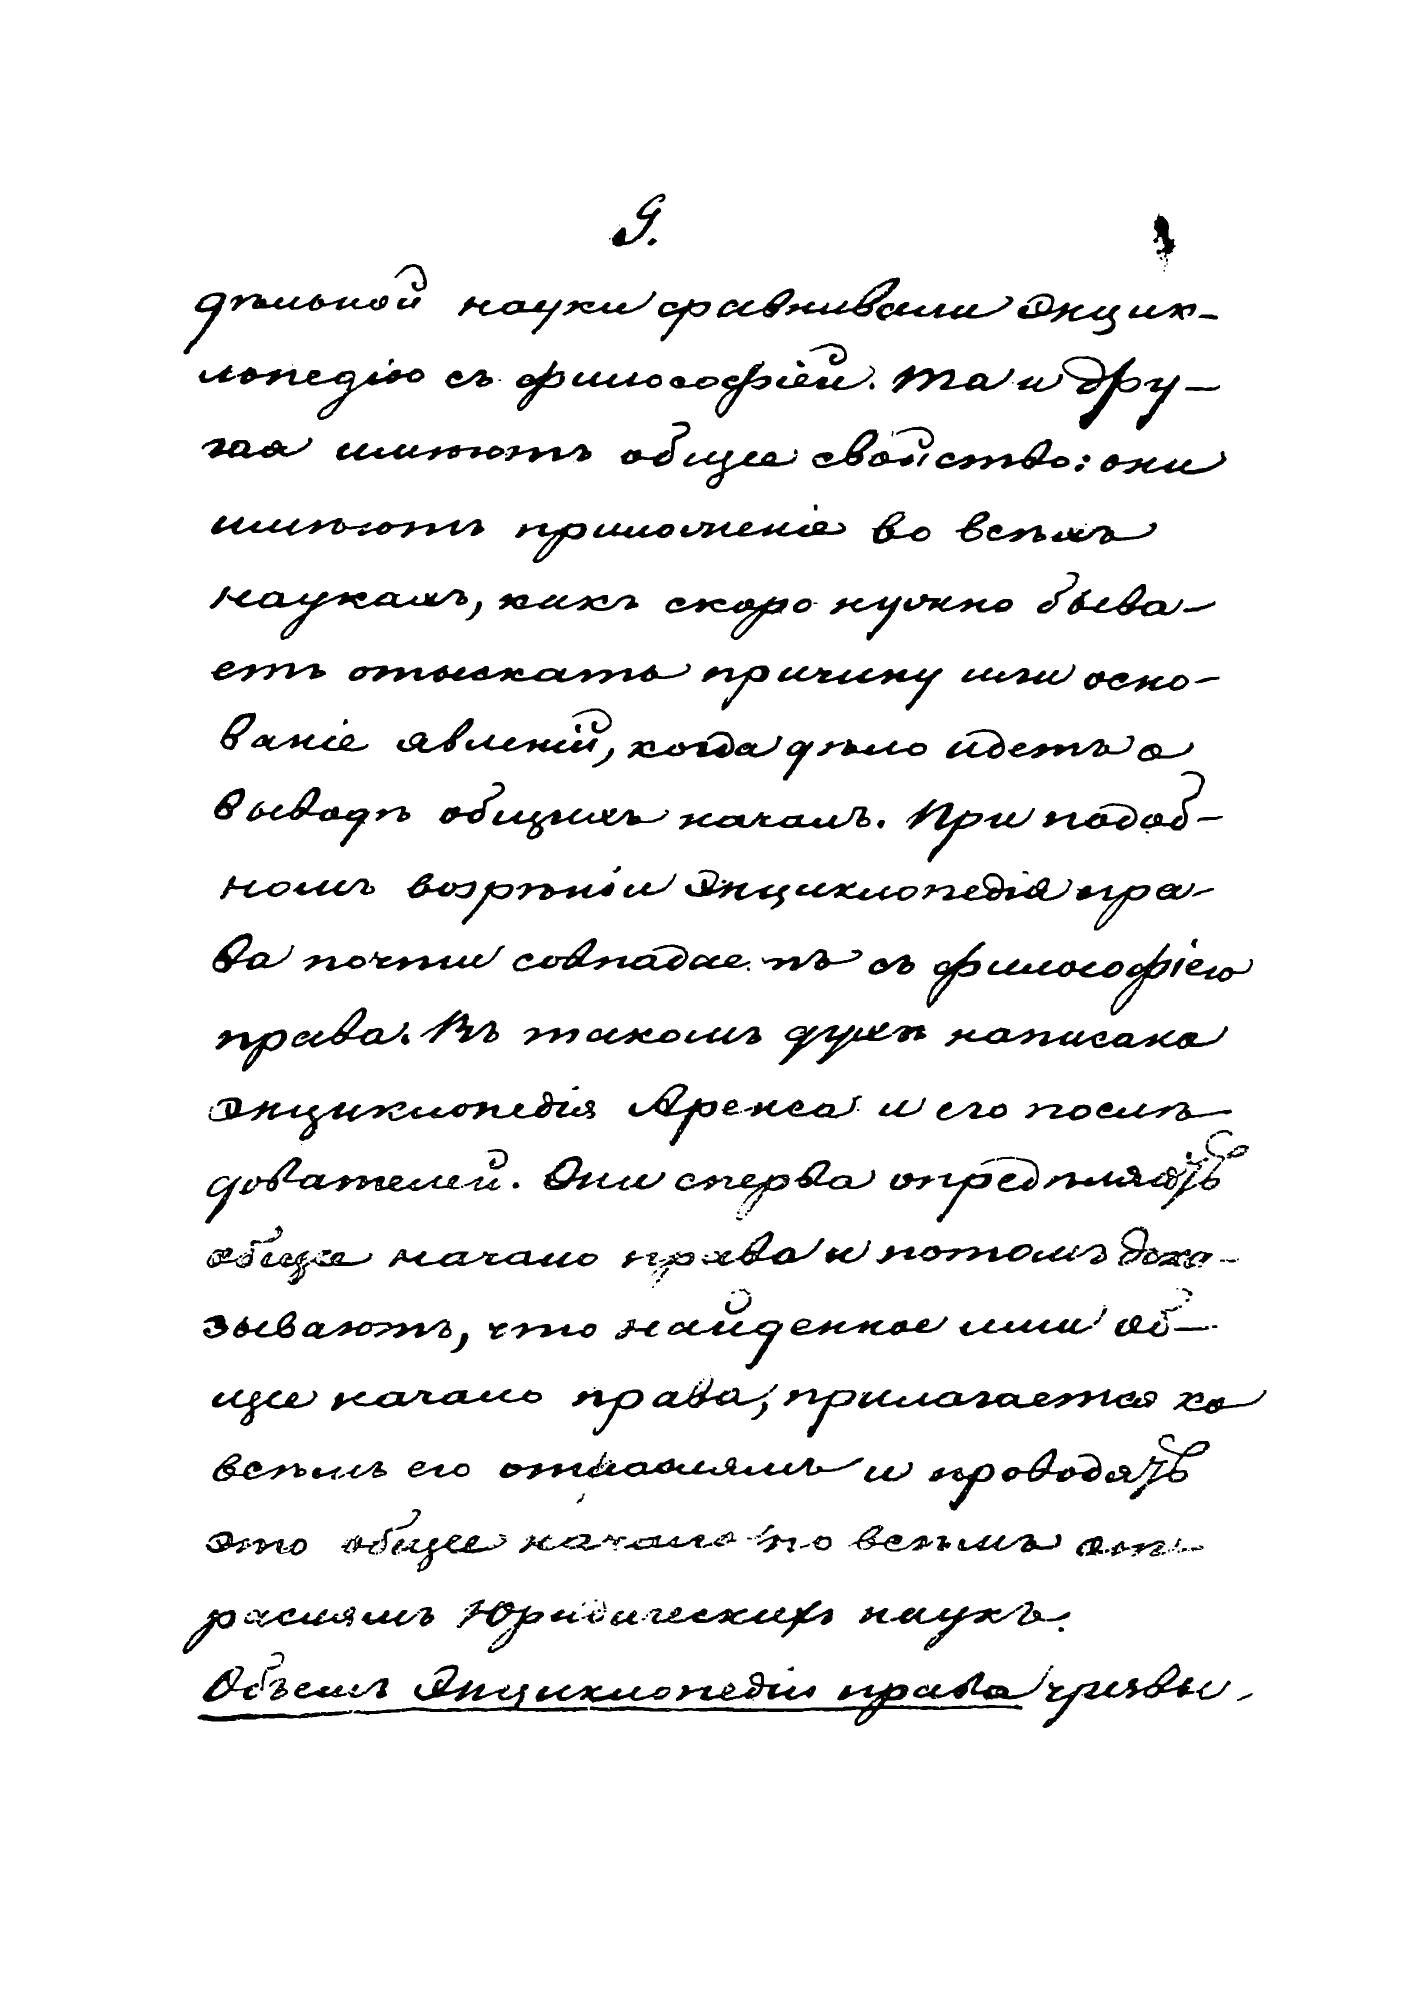 9.
дѣльной науки сравнивали Энцик-
лопедію съ философіей. Та и дру-
гая имѣютъ общее свойство: они
имѣютъ приложеніе во всѣхъ
наукахъ, какъ скоро нужно быва-
етъ отыскать причину или осно-
ваніе явленій, когда дѣло идетъ о
выводѣ общихъ началъ. При подоб-
номъ возрѣніи Энциклопедія пра-
ва почти совпадаетъ съ философіею
права. Въ такомъ духѣ написана
Энциклопедія Аренса и его послѣ-
дователей. Они сперва опредѣляютъ
общее начало права и потомъ дока-
зываютъ, что найденное ими об-
щее начало права, прилагается ко
всѣмъ его отраслямъ и проводятъ
это общее начало по всѣмъ от-
раслямъ Юридическихъ наукъ.
Объемъ Энциклопедіи права чрезвы-